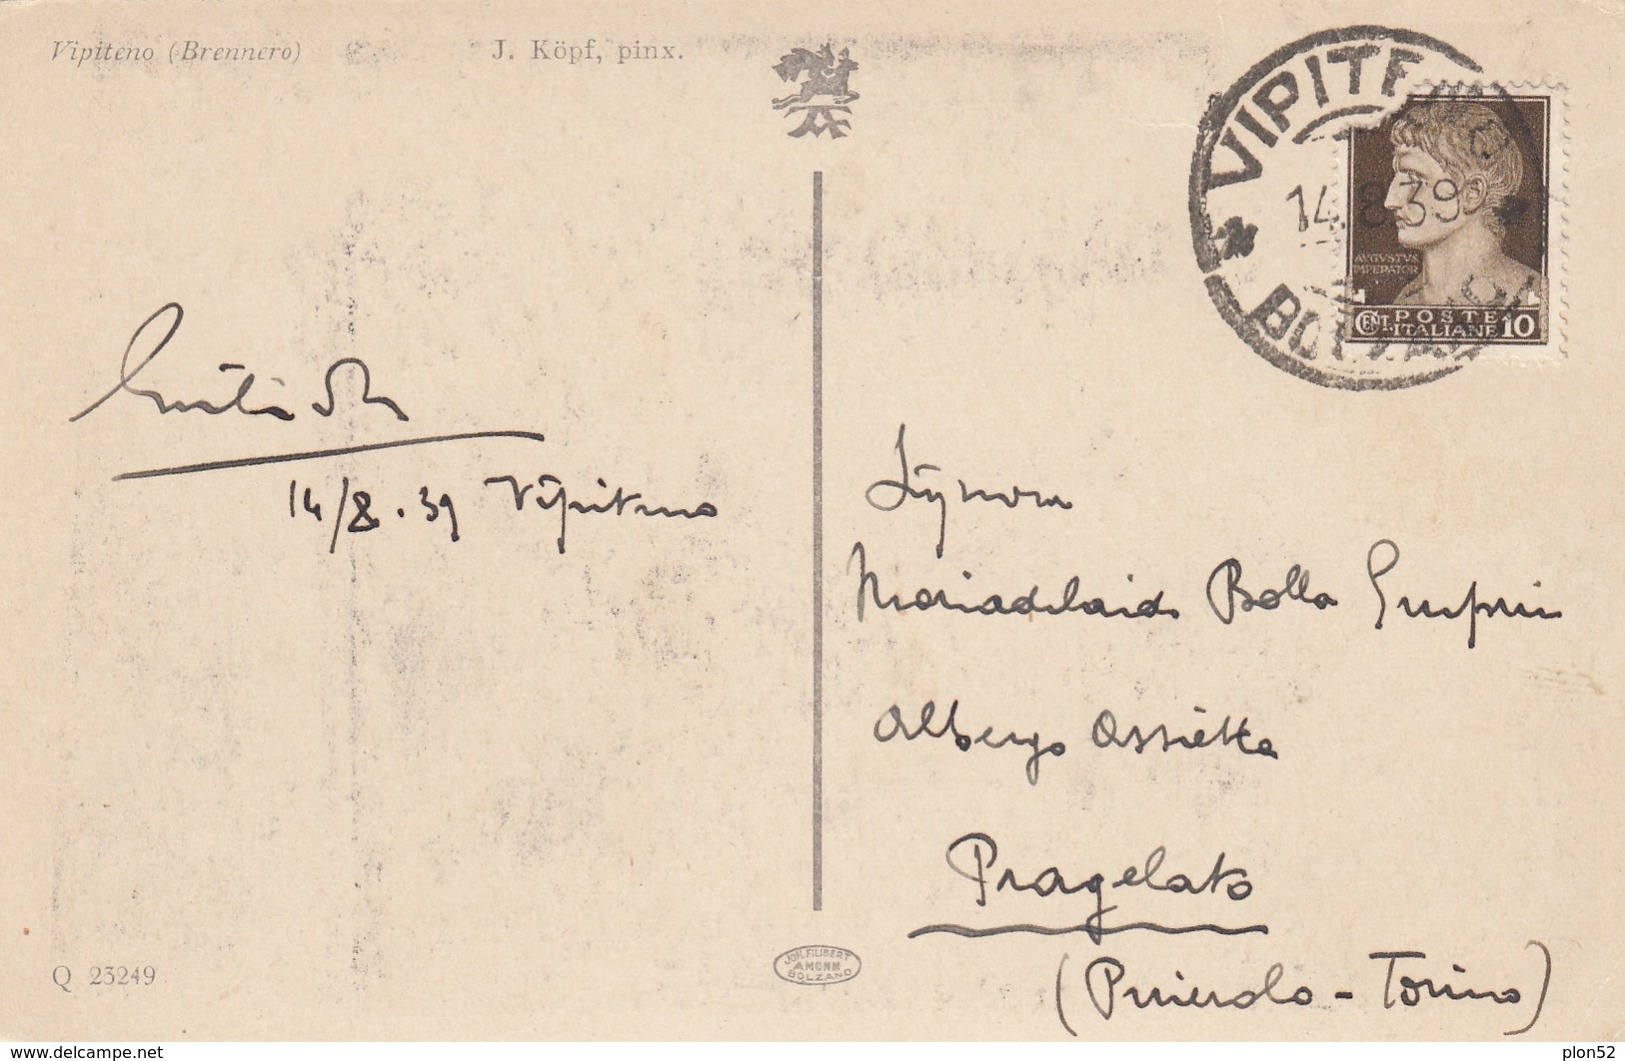 Vipiteno (Brennero)
J. Köpf, pinx.
VIPITENO
14.8.39
BOLZANO
AVGVSTVS
IMPERATOR
CENT. POSTE ITALIANE 10
14/8.39 Vipiteno
Signora
Mariadelaide Bolla
Albergo Assietta
Pragelato
(Pinerolo - Torino)
JOH. FILIBERT
AMONN
BOLZANO
Q 23249
http://www.delcampe.net
plon52